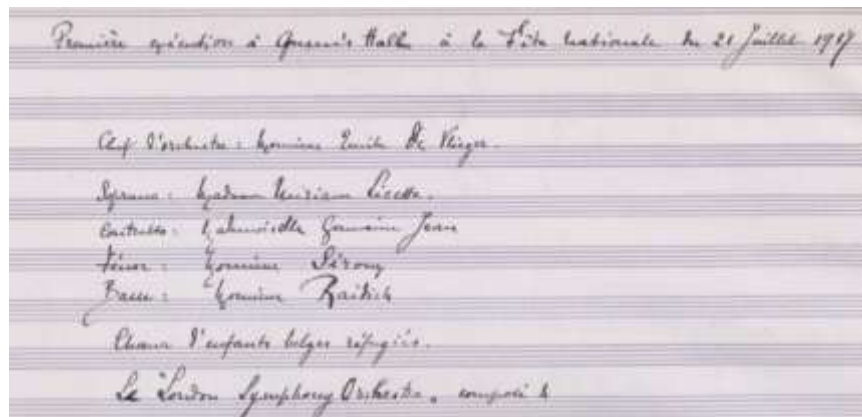 Première exécution à Queen's Hall à la Fête nationale du 21 Juillet 1917
Chef d'orchestre : Monsieur Emile De Vlieger.
Soprano : Madame Miriam Licette.
Contralto : Mademoiselle Germaine Jean
Ténor : Monsieur
Basse : Monsieur
Chœur d'enfants belges réfugiés.
Le "London Symphony Orchestra, composé